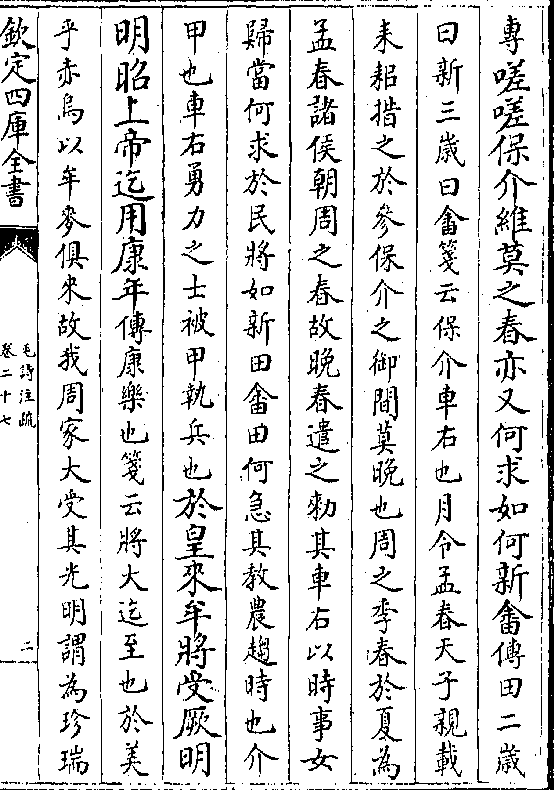 專嗟嗟保介維莫之春亦又何求如何新畬傳田二歲
曰新三歲曰畬箋云保介車右也月令孟春天子親載
耒耜措之於參保介之御間莫晚也周之季春於夏為
孟春諸侯朝周之春故晚春遣之勑其車右以時事女
歸當何求於民將如新田畬田何急其教農趨時也介
甲也車右勇力之士被甲執兵也於皇來牟將受厥明
明昭上帝迄用康年傳康樂也箋云將大迄至也於美
乎赤烏以牟麥俱來故我周家大受其光明謂為珍瑞
欽定四庫全書
毛詩注疏
卷二十七
二